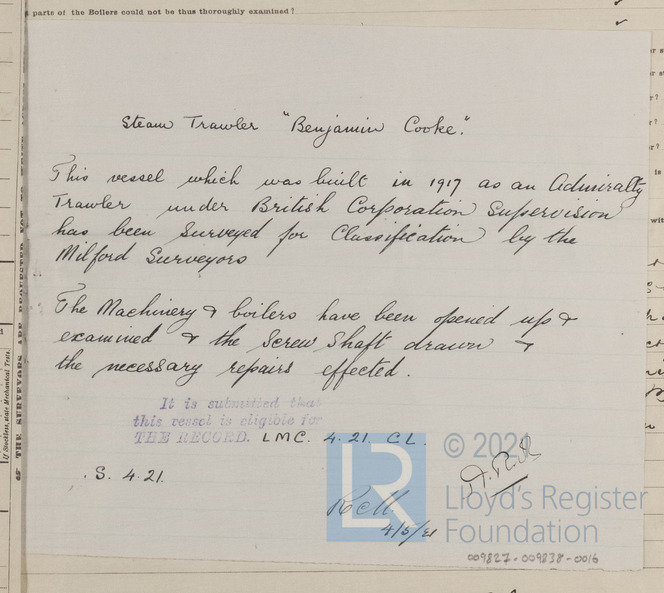 parts of the Boilers could not be thus thoroughly examined?
Steam Trawler "Benjamin Cooke".
This vessel which was built in 1917 as an Admiralty
Trawler under British Corporation Supervision
has been Surveyed for Classification by the
Milford Surveyors
The Machinery & boilers have been opened up &
examined & the Screw Shaft drawn &
the necessary repairs effected.
It is submitted that
this vessel is eligible for
THE RECORD. LMC. 4.21. CL.
S. 4.21.
4/5/21
LR
© 2021
Lloyd's Register
Foundation
009827-009838-0016
If Stockless, state Mechanical Tests.
THE SURVEYORS ARE REQUESTED NOT TO WRITE